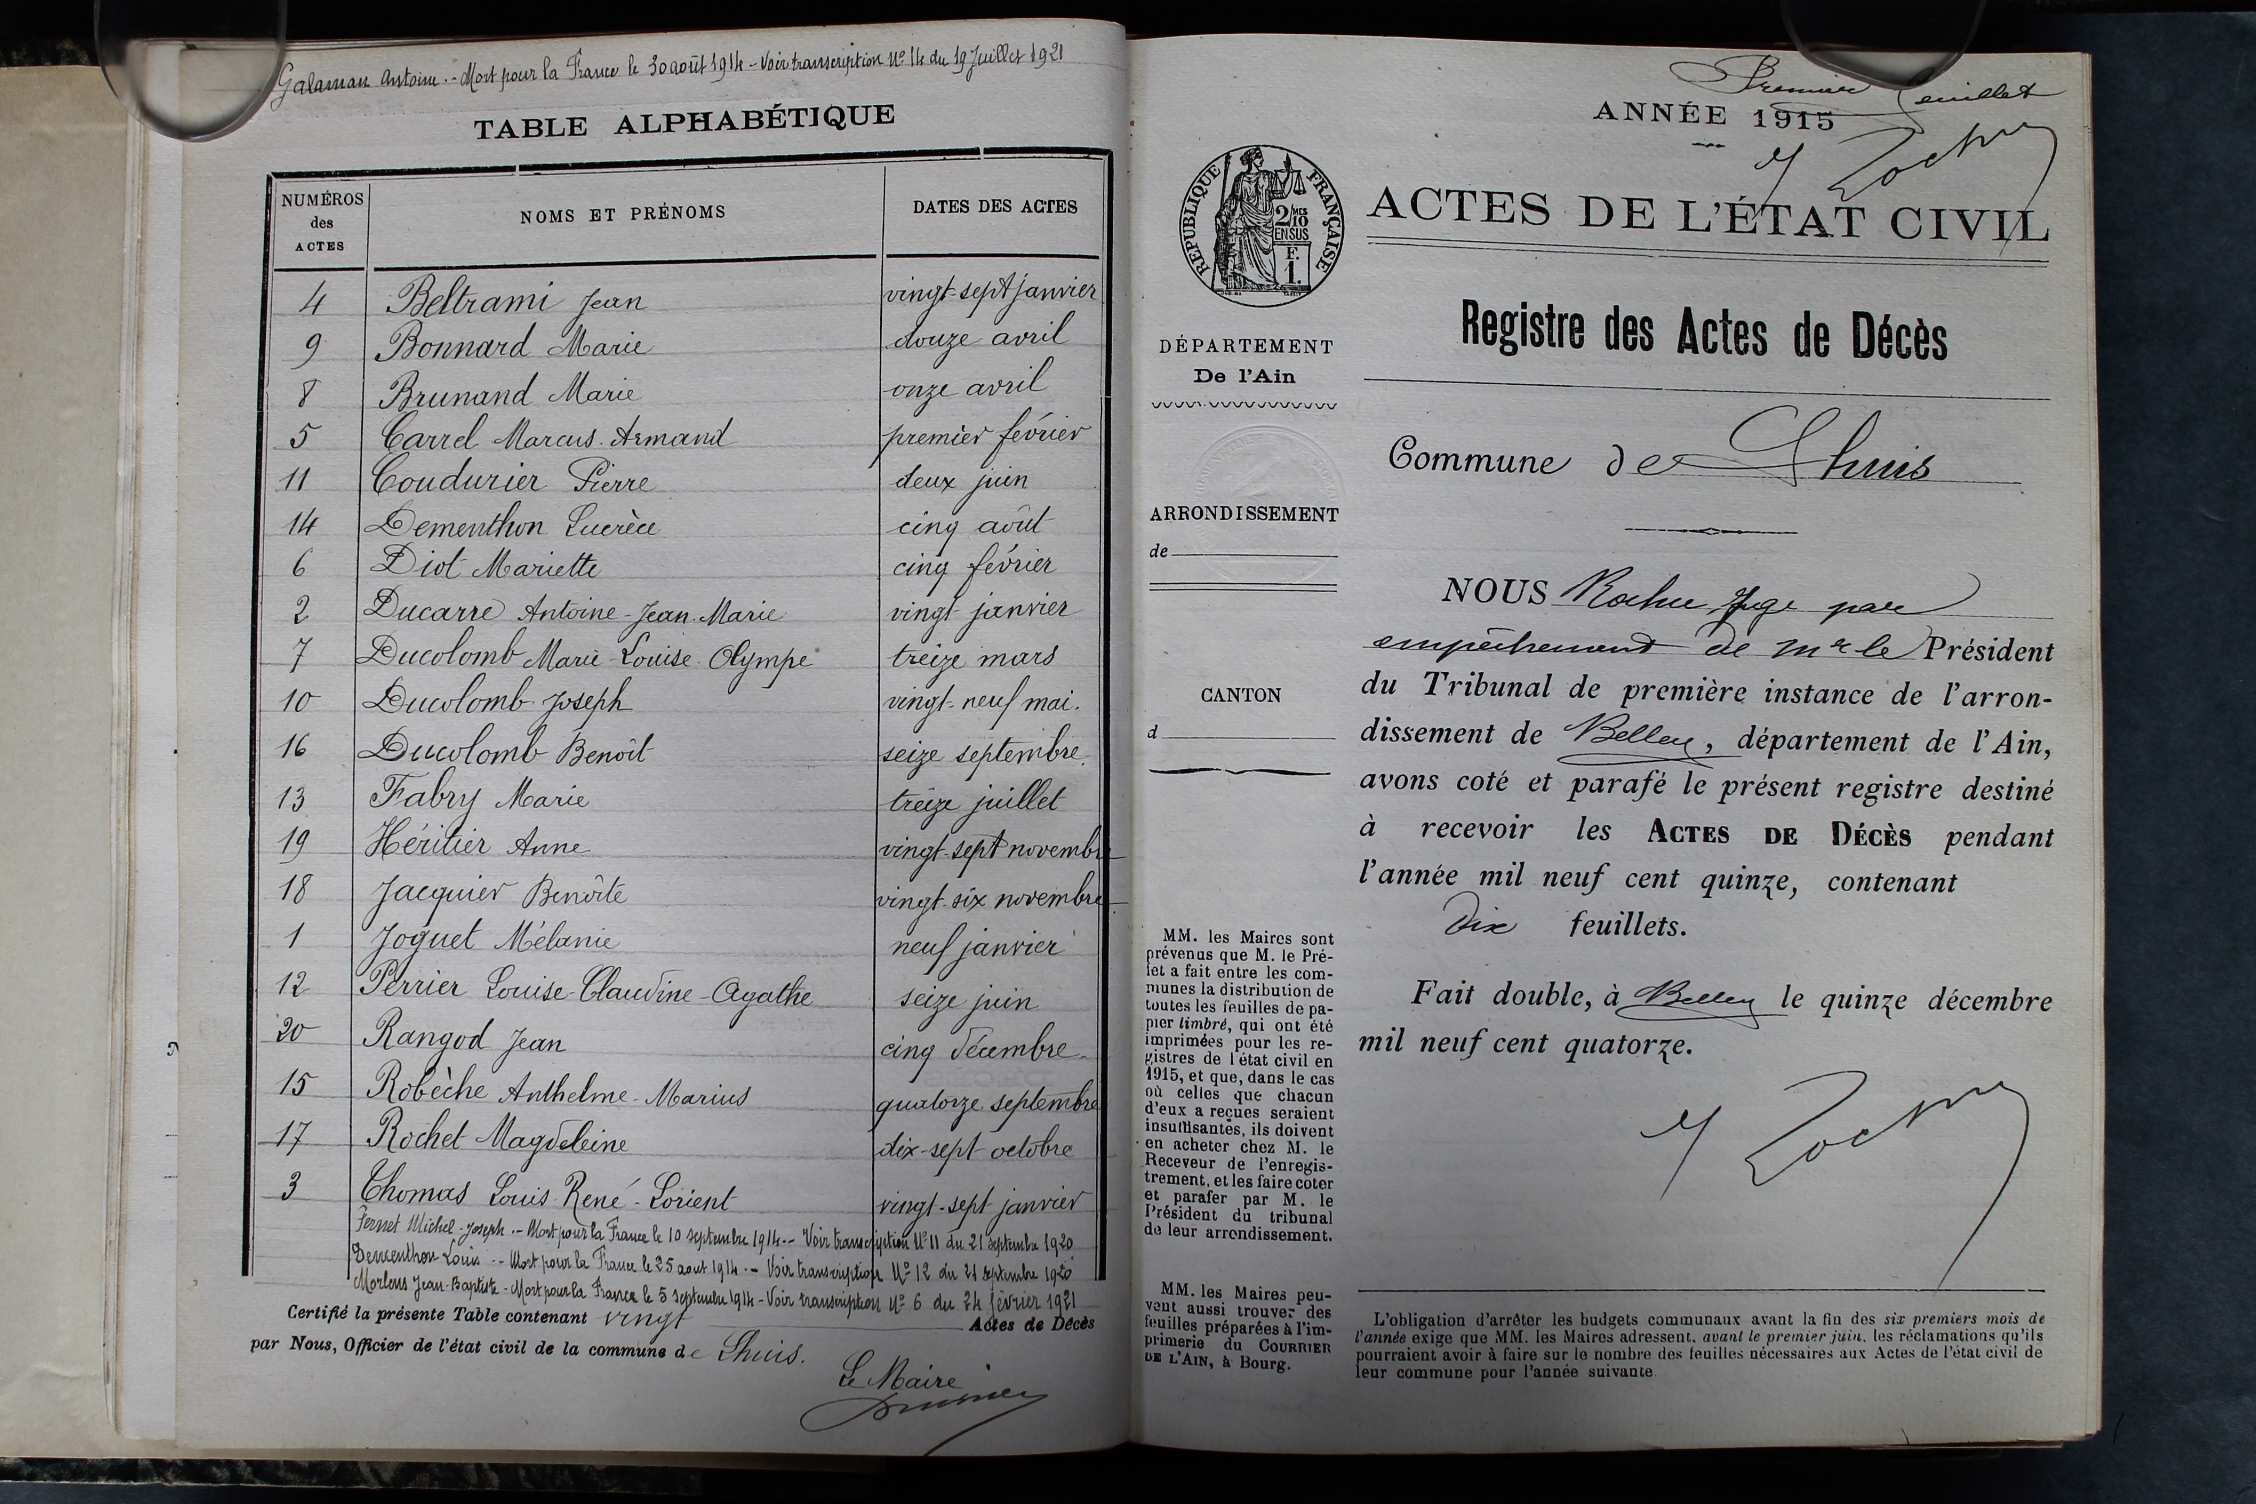 Galaman Antoine .- Mort pour la France le 30 août 1914 - Voir transcription N° 14 du 19 Juillet 1921
TABLE ALPHABÉTIQUE
NUMÉROS des ACTES NOMS ET PRÉNOMS DATES DES ACTES
4 Beltrami Jean vingt-sept janvier
9 Bonnard Marie douze avril
8 Brunand Marie onze avril
5 Carrel Marcus-Armand premier février
11 Coudurier Pierre deux juin
14 Dementhon Lucrèce cinq août
6 Diot Mariette cinq février
2 Ducarre Antoine-Jean-Marie vingt janvier
7 Ducolomb Marie-Louise-Olympe treize mars
10 Ducolomb Joseph vingt-neuf mai.
16 Ducolomb Benoît seize septembre.
13 Fabry Marie treize juillet
19 Héritier Anne vingt-sept novembre
18 Jacquier Benoîte vingt-six novembre
1 Joguet Mélanie neuf janvier
12 Perrier Louise-Claudine-Agathe seize juin
20 Rangod Jean cinq décembre
15 Robèche Anthelme-Marius quatorze septembre
17 Rochet Magdeleine dix-sept octobre
3 Thomas Louis-René-Lorient vingt-sept janvier
Fernet Michel-Joseph .- Mort pour la France le 10 septembre 1914.- Voir transcription N° 11 du 21 septembre 1920
Dementhon Louis .- Mort pour la France le 25 aout 1914.- Voir transcription N° 12 du 21 septembre 1920
Morlens Jean-Baptiste - Mort pour la France le 5 septembre 1914 - Voir transcription N° 6 du 24 février 1921
Certifié la présente Table contenant vingt Actes de Décès
par Nous, Officier de l'état civil de la commune de Lhuis.
Le Maire
Premier feuillet
ANNÉE 1915
ACTES DE L'ÉTAT CIVIL
RÉPUBLIQUE FRANÇAISE
2/10 MES
EN SUS
F.
1.
Registre des Actes de Décès
DÉPARTEMENT
De l'Ain
Commune de Lhuis
ARRONDISSEMENT
de
CANTON
d
NOUS Rochu Juge par
empêchement de Mr le Président
du Tribunal de première instance de l'arron-
dissement de Belley, département de l'Ain,
avons coté et parafé le présent registre destiné
à recevoir les ACTES DE DÉCÈS pendant
l'année mil neuf cent quinze, contenant
Dix feuillets.
Fait double, à Belley le quinze décembre
mil neuf cent quatorze.
MM. les Maires sont
prévenus que M. le Pré-
fet a fait entre les com-
munes la distribution de
toutes les feuilles de pa-
pier timbré, qui ont été
imprimées pour les re-
gistres de l'état civil en
1915, et que, dans le cas
où celles que chacun
d'eux a reçues seraient
insuffisantes, ils doivent
en acheter chez M. le
Receveur de l'enregis-
trement, et les faire coter
et parafer par M. le
Président du tribunal
de leur arrondissement.
MM. les Maires peu-
vent aussi trouver des
feuilles préparées à l'im-
primerie du COURRIER
DE L'AIN, à Bourg.
L'obligation d'arrêter les budgets communaux avant la fin des six premiers mois de
l'année exige que MM. les Maires adressent, avant le premier juin, les réclamations qu'ils
pourraient avoir à faire sur le nombre des feuilles nécessaires aux Actes de l'état civil de
leur commune pour l'année suivante.